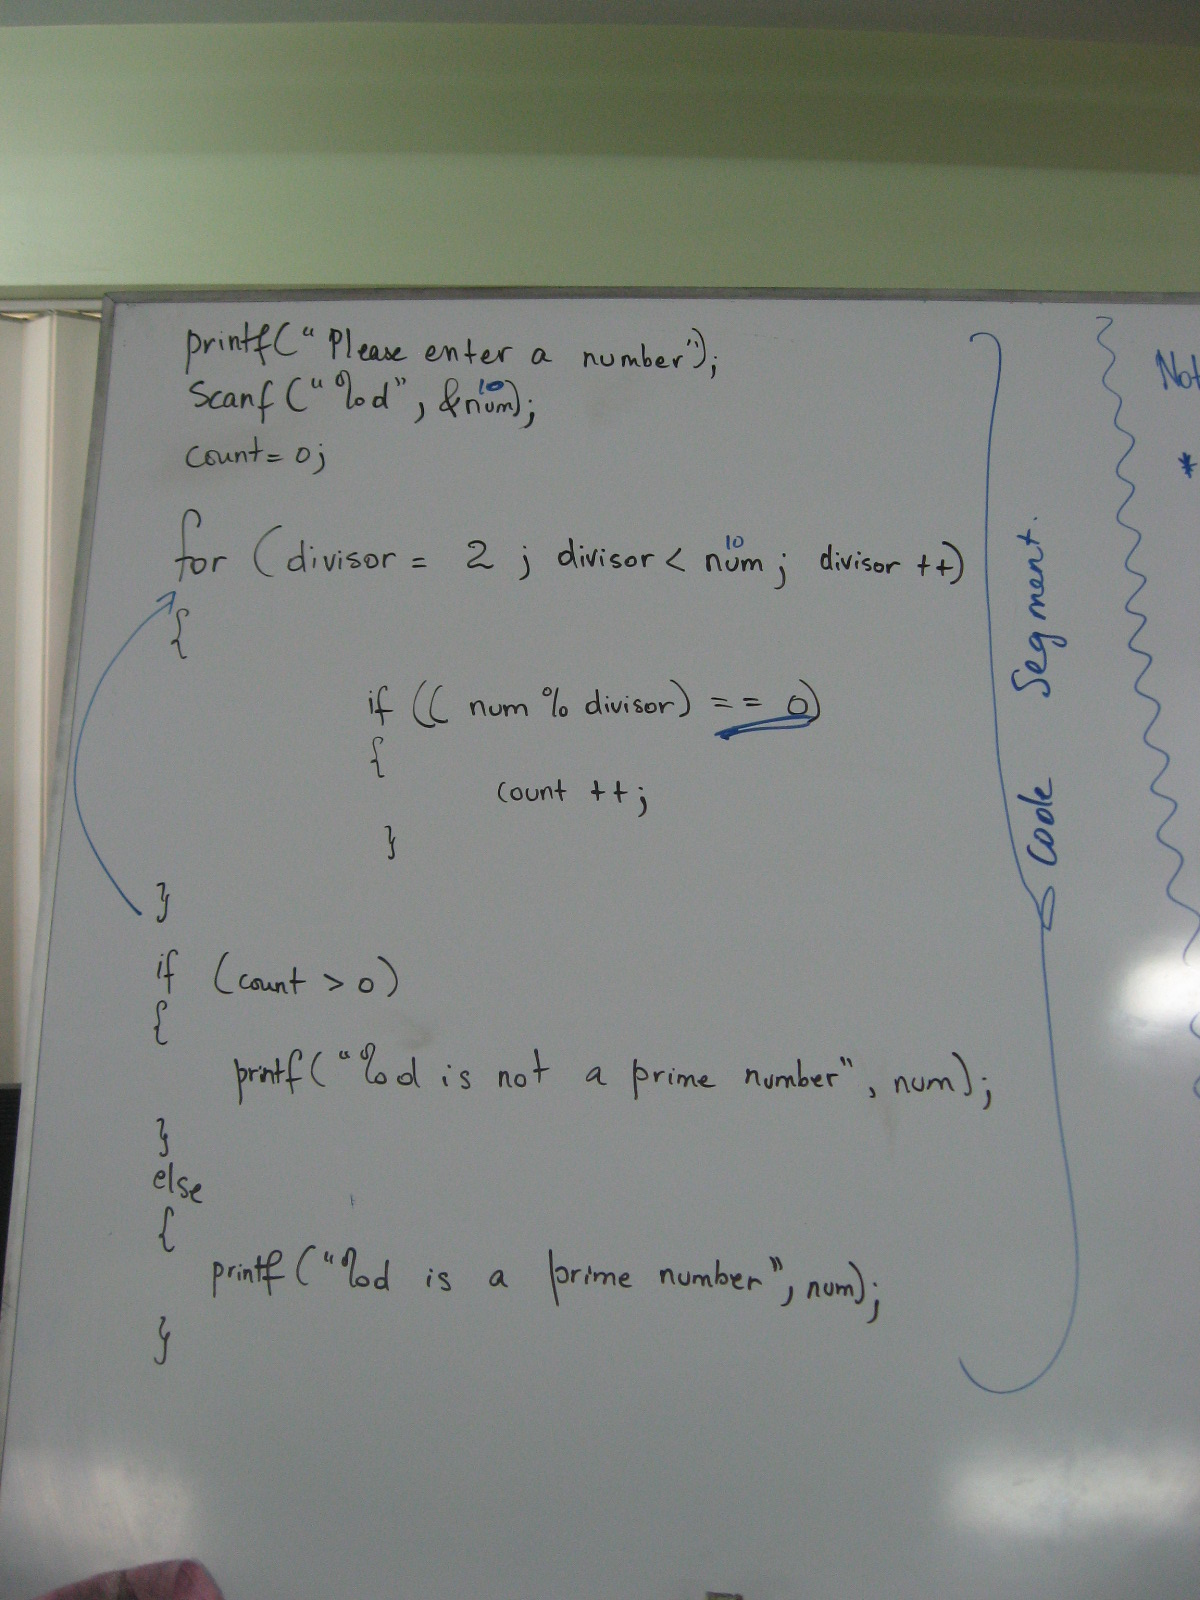 printf("Please enter a number");
Scanf("%d", &num);
10
count=0;
for (divisor = 2 ; divisor < num ; divisor ++)
10
{
if (( num % divisor) == 0)
{
count ++;
}
}
if (count > 0)
{
printf("%d is not a prime number", num);
}
else
{
printf("%d is a prime number", num);
}
Code Segment.
*